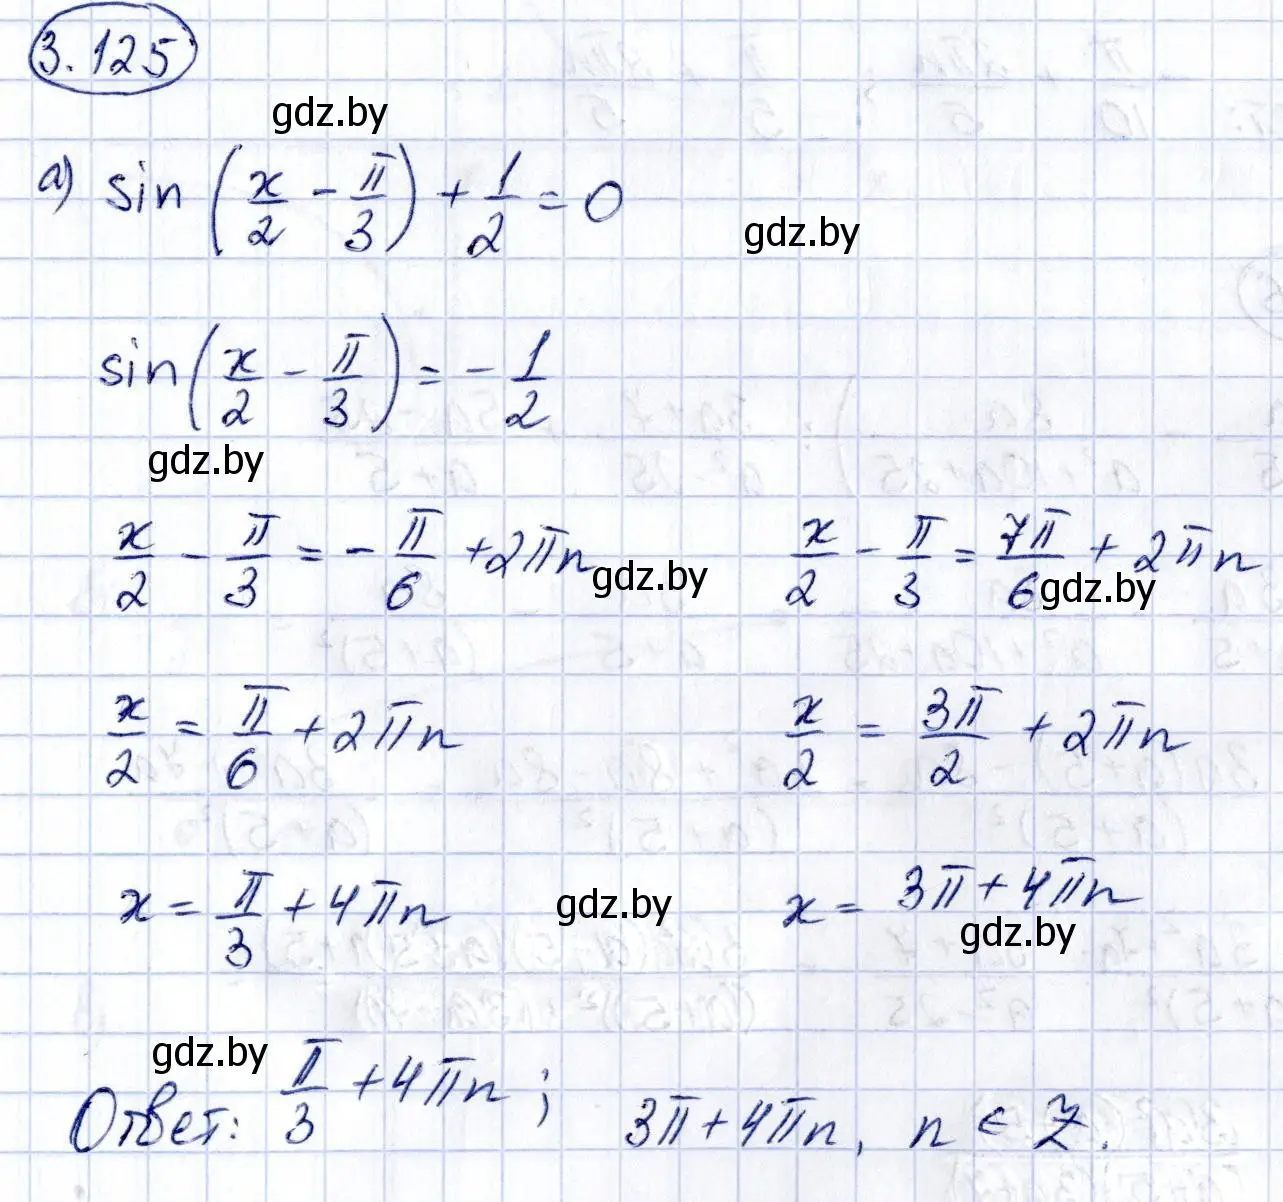 3.125
gdz.by
а) sin (x/2 - π/3) + 1/2 = 0
gdz.by
sin (x/2 - π/3) = - 1/2
gdz.by
x/2 - π/3 = - π/6 + 2πn   x/2 - π/3 = 7π/6 + 2πn
gdz.by gdz.by
x/2 = π/6 + 2πn   x/2 = 3π/2 + 2πn
x = π/3 + 4πn   x = 3π + 4πn
gdz.by gdz.by
gdz.by
Ответ: π/3 + 4πn ; 3π + 4πn, n ∈ Z.